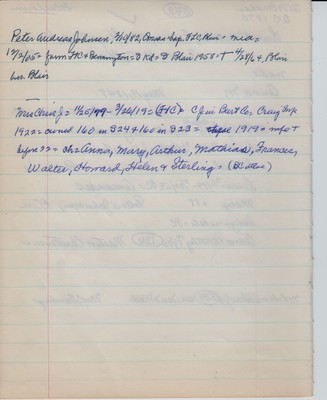 Peter Andreas Johnsen, 2/10/82, Omaha bap. FLC, Blair = mea =
12/2/05 = farm FK & Bennington = D Kd = D Blair 1958 = † 4/28/64, Blair
bur. Blair
Mrs Chris J = 11/25/99 - 3/26/19 = (FLC) = C J in Burt Co. Craig Twp
1922 = owned 160 in S24 & 160 in S23 = 1919 = mfo †
before 22 = ch: Anna, Mary, Arthur, Mathias, Frances,
Walter, Howard, Helen & Sterling =